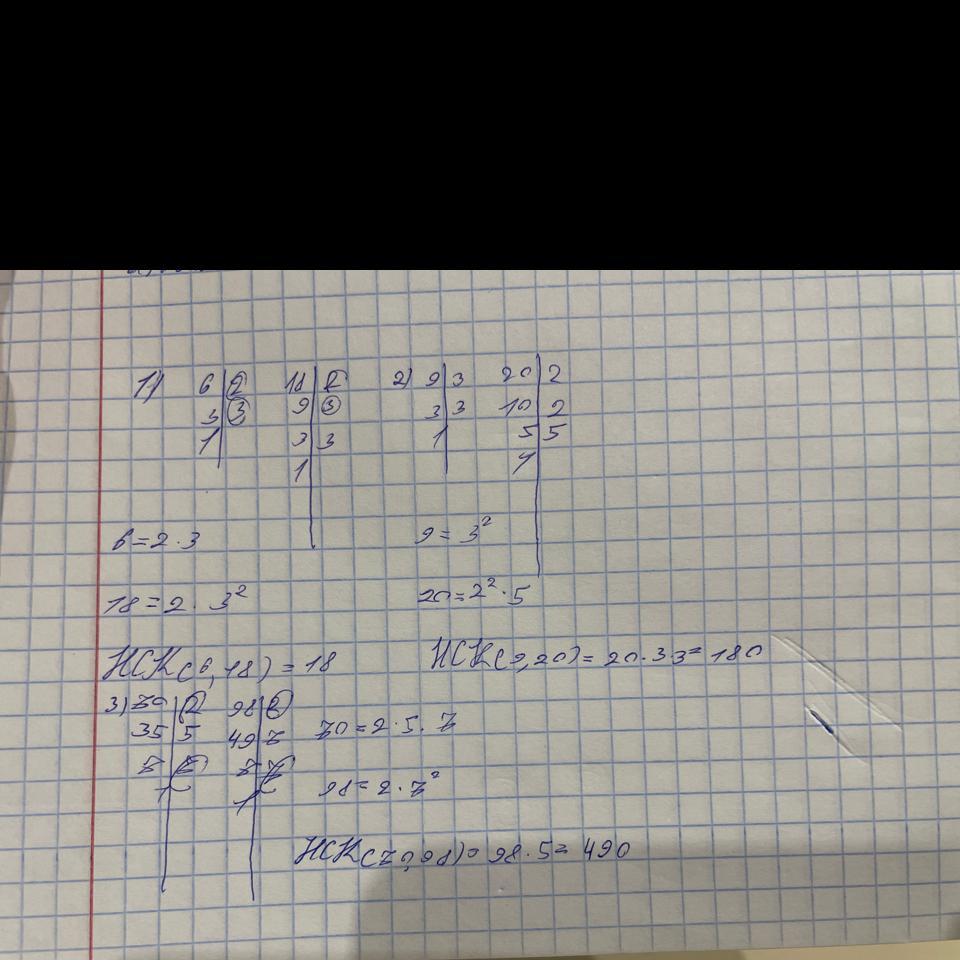 1) 6 | 2 18 | 2 2) 9 | 3 20 | 2
3 | 3 9 | 3 3 | 3 10 | 2
1 3 | 3 1 5 | 5
1 1
6 = 2 · 3 9 = 3²
18 = 2 · 3² 20 = 2² · 5
НСК(6, 18) = 18 НСК(9, 20) = 20·3·3 = 180
3) 70 | 2 98 | 2
35 | 5 49 | 7 70 = 2 · 5 · 7
7 | 7 7 | 7
1 1 98 = 2 · 7²
НСК(70, 98) = 98 · 5 = 490